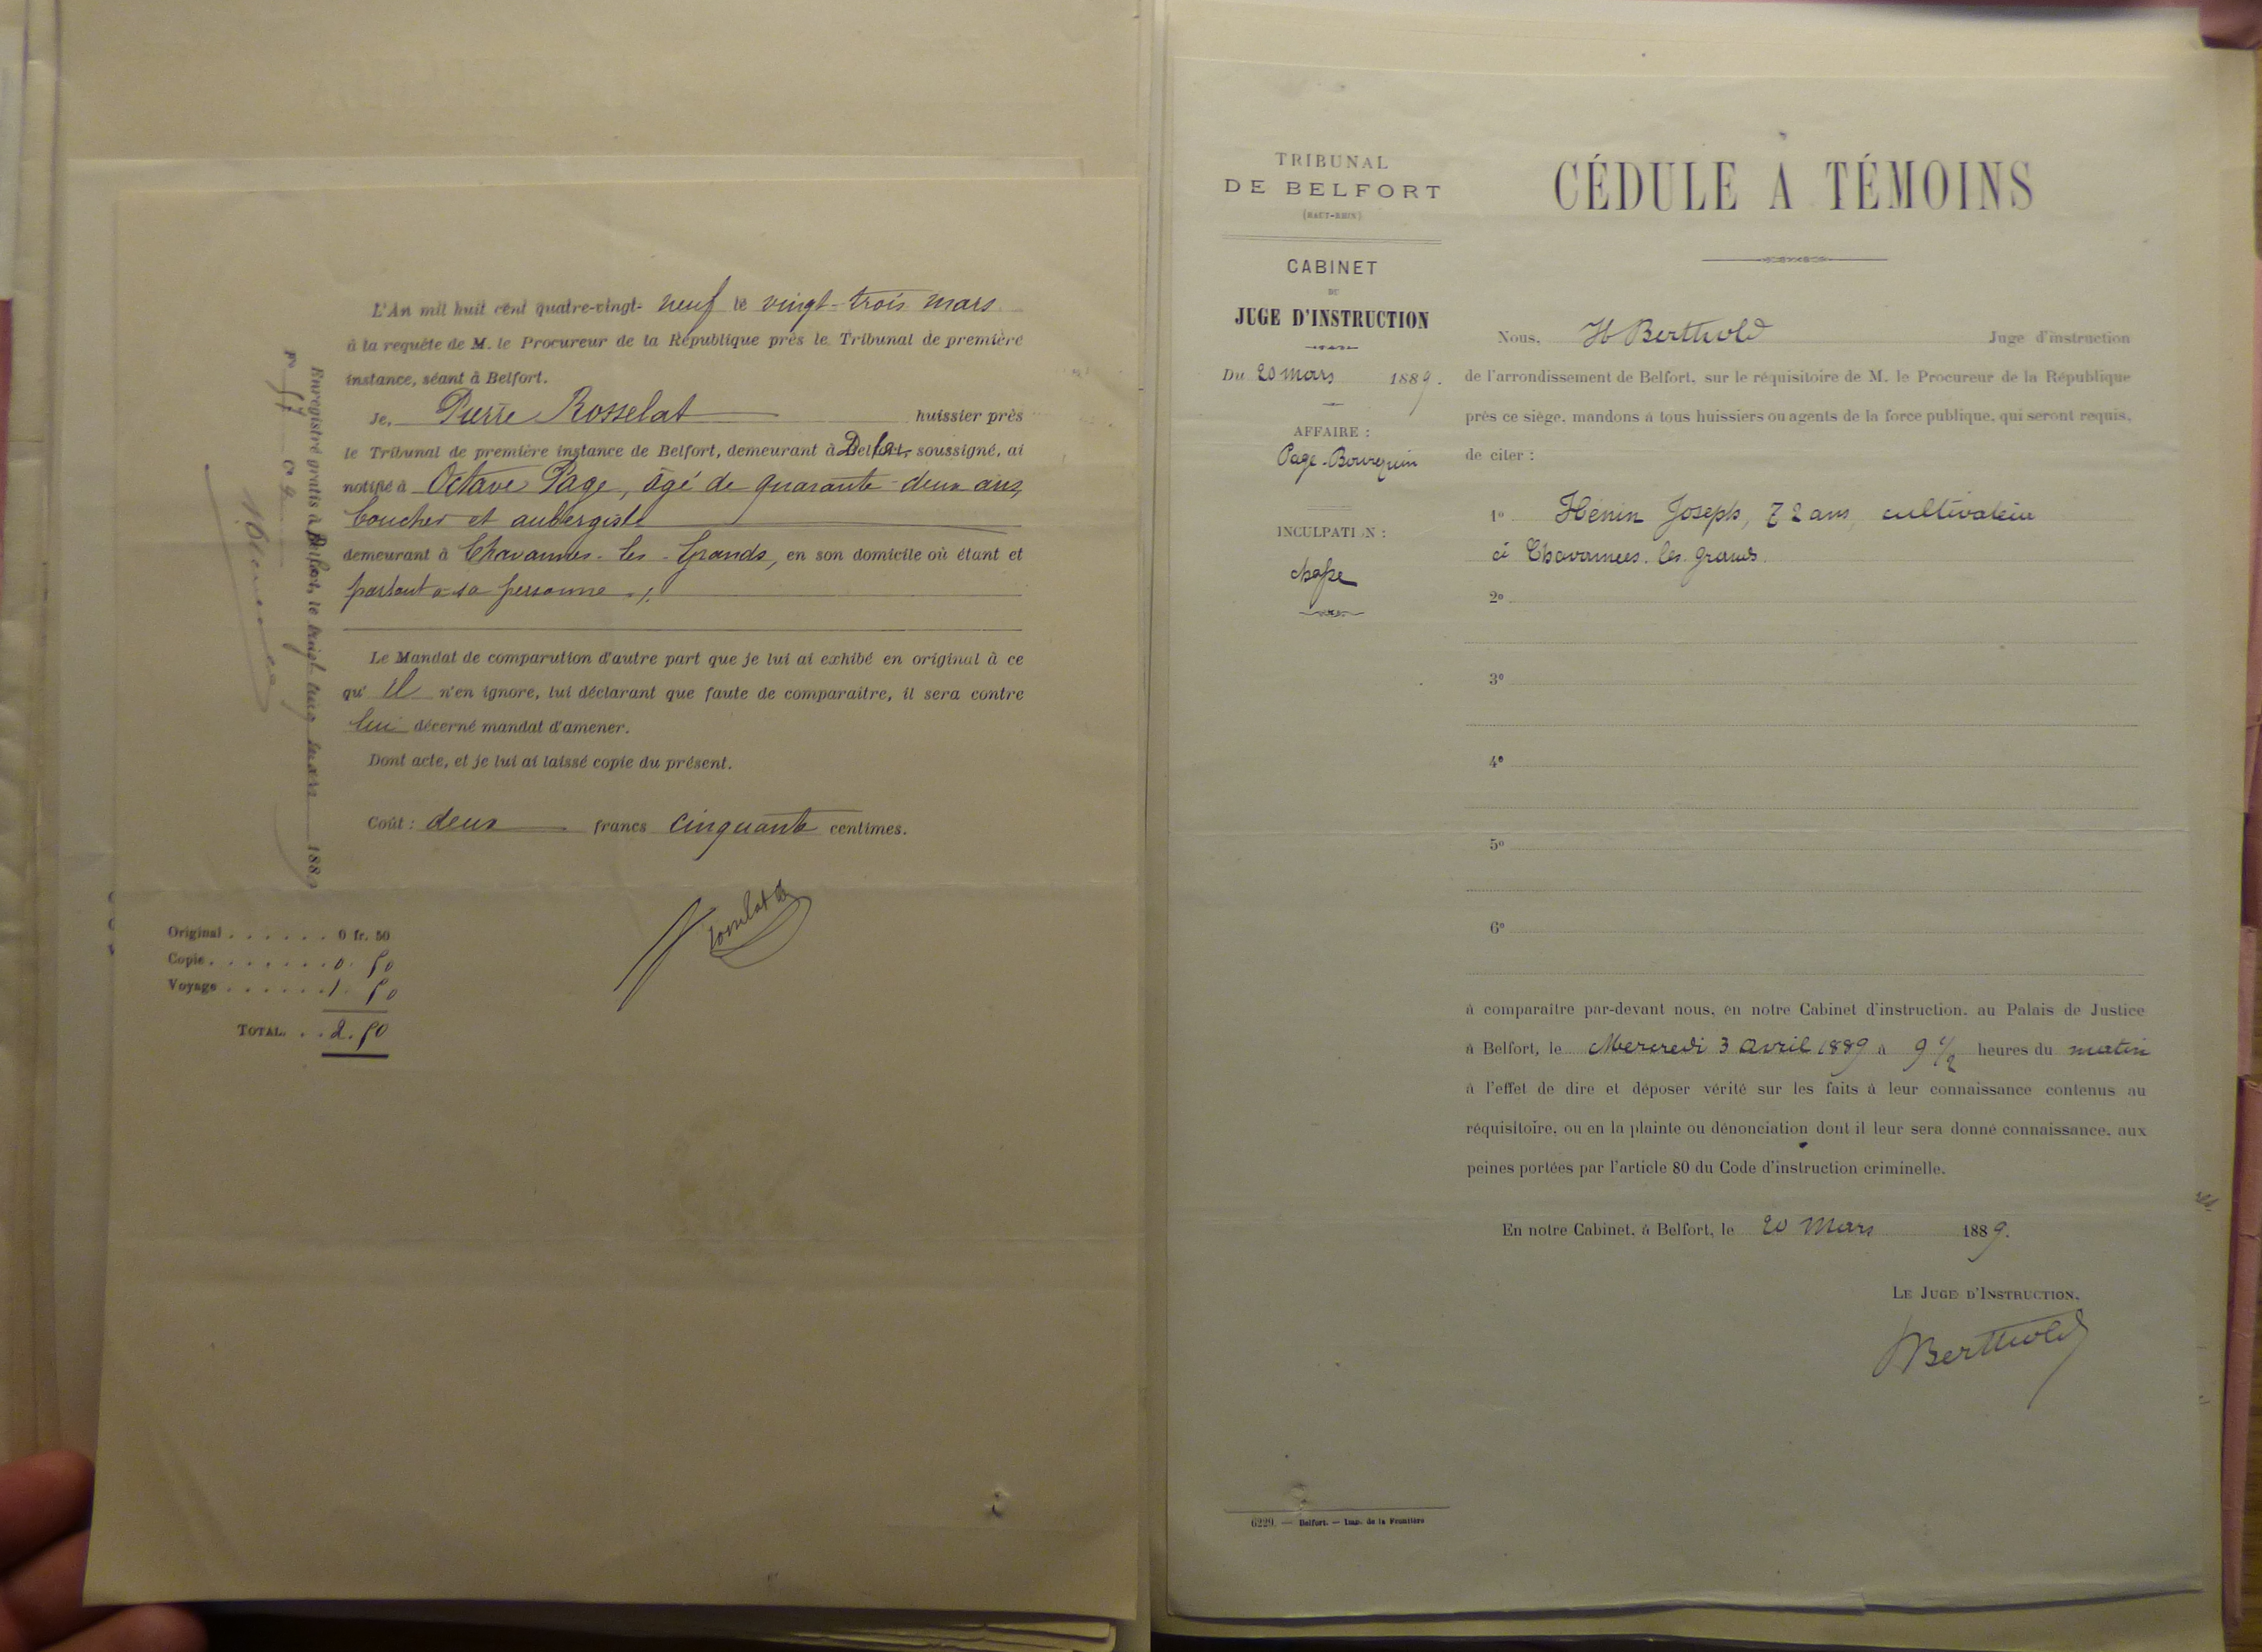 L'An mil huit cent quatre-vingt- neuf le vingt-trois mars
à la requête de M. le Procureur de la République près le Tribunal de première
instance, séant à Belfort.
Je, Pierre Rosselat huissier près
le Tribunal de première instance de Belfort, demeurant à soussigné, ai
notifié à Octave Page, âgé de quarante-deux ans,
boucher et aubergiste
demeurant à Chavannes-les-Grands, en son domicile où étant et
parlant à sa personne.
Le Mandat de comparution d'autre part que je lui ai exhibé en original à ce
qu' il n'en ignore, lui déclarant que faute de comparaître, il sera contre
lui décerné mandat d'amener.
Dont acte, et je lui ai laissé copie du présent.
Coût : deux francs cinquante centimes.
Original . . . . . . 0 fr. 50
Copie . . . . . . . 0. 50
Voyage . . . . . . 1. 50
TOTAL. . . 2. 50
Enregistré gratis à Belfort, le vingt cinq mars 1889
TRIBUNAL
DE BELFORT
(HAUT-RHIN)
CABINET
DU
JUGE D'INSTRUCTION
Du 20 mars 1889.
AFFAIRE :
Page-Bourquin
INCULPATION :
chasse
CÉDULE A TÉMOINS
Nous, H Berthold Juge d'instruction
de l'arrondissement de Belfort, sur le réquisitoire de M. le Procureur de la République
près ce siège, mandons à tous huissiers ou agents de la force publique, qui seront requis,
de citer :
1° Henin Joseph, 72 ans, cultivateur
à Chavannes. les. grands.
2°
3°
4°
5°
6°
à comparaître par-devant nous, en notre Cabinet d'instruction, au Palais de Justice
à Belfort, le Mercredi 3 avril 1889 à 9 1/2 heures du matin
à l'effet de dire et déposer vérité sur les faits à leur connaissance contenus au
réquisitoire, ou en la plainte ou dénonciation dont il leur sera donné connaissance, aux
peines portées par l'article 80 du Code d'instruction criminelle.
En notre Cabinet, à Belfort, le 20 Mars 1889.
LE JUGE D'INSTRUCTION,
Berthold
6229. — Belfort. — Imp. de la Frontière